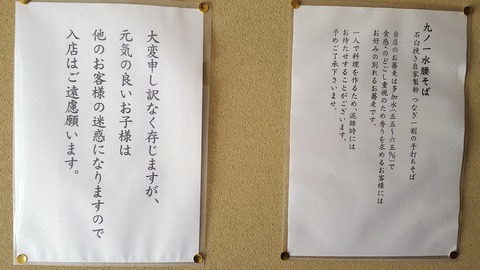 大変申し訳なく存じますが、
元気の良いお子様は
他のお客様の迷惑になりますので
入店はご遠慮願います。
九ノ一 水腰そば
石臼挽き自家製粉 つなぎ一割の手打ちそば
当店のお蕎麦は多加水(五五~六五%)で
食感・のどごし重視のため香りを求めるお客様には
お好みの別れるお蕎麦です。
一人で料理を作るため、混雑時には
お待たせすることがございます。
予めご了承下さいませ。